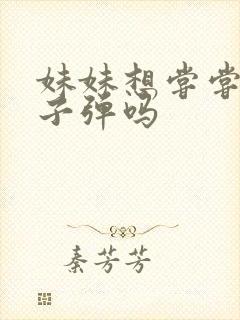 妹妹想尝尝
子弹吗
秦芳芳